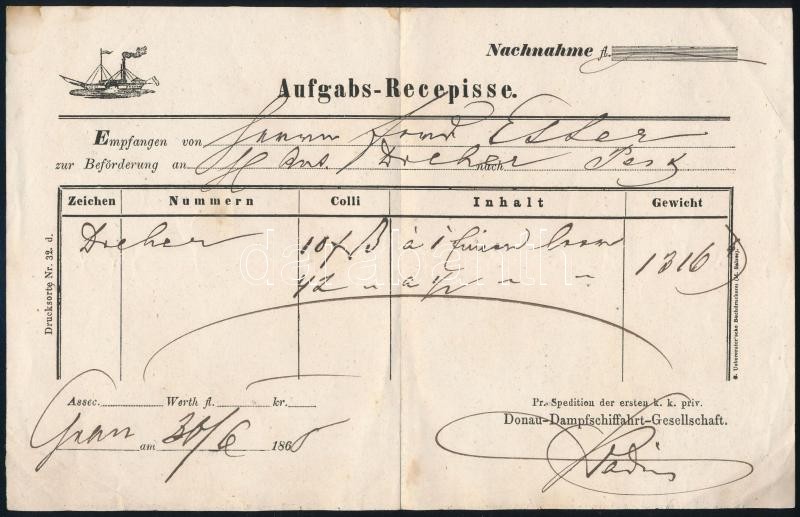 Nachnahme fl.
Aufgabs-Recepisse.
Empfangen von Herrn Ferd Esser
zur Beförderung an Hans. Dreher nach Pest
Zeichen Nummern Colli Inhalt Gewicht
Dreher 10 fß à 1 Eimer leer
42 " à ½ " " 1316
Drucksorte Nr. 32. d.
darabanth
Assec. Werth fl. kr.
Gran am 30/6 1868
Pr. Spedition der ersten k. k. priv.
Donau-Dampfschiffahrt-Gesellschaft.